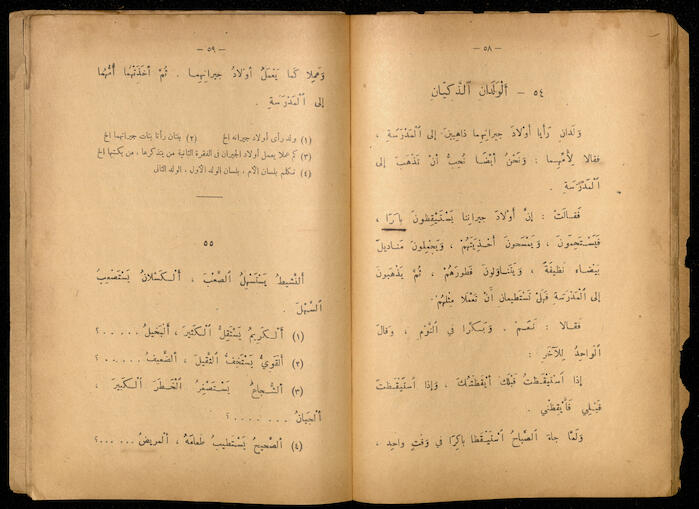 — ٥٨ —
٥٤ – أَلْوَلَدَانِ ٱلذَّكِيَّانِ
وَلَدَانِ رَأَيَا أَوْلَادَ جِيرَانِهِمَا ذَاهِبِينَ إِلَى ٱلْمَدْرَسَةِ ،
فَقَالَا لِأُمِّهِمَا : وَنَحْنُ أَيْضًا نُحِبُّ أَنْ نَذْهَبَ إِلَى
ٱلْمَدْرَسَةِ .
فَقَالَتْ : إِنَّ أَوْلَادَ جِيرَانِنَا يَسْتَيْقِظُونَ بَاكِرًا ،
فَيَسْتَحِمُّونَ ، وَيَمْسَحُونَ أَحْذِيَتَهُمْ ، وَيَحْمِلُونَ مَنَادِيلَ
بَيْضَاءَ نَظِيفَةً ، وَيَتَنَاوَلُونَ فَطُورَهُمْ ، ثُمَّ يَذْهَبُونَ
إِلَى ٱلْمَدْرَسَةِ فَهَلْ تَسْتَطِيعَانِ أَنْ تَعْمَلَا مِثْلَهُمْ
فَقَالَا : نَعَمْ . وَبَكَّرَا فِي ٱلنَّوْمِ ، وَقَالَ
ٱلْوَاحِدُ لِلْآخَرِ :
إِذَا ٱسْتَيْقَظْتُ قَبْلَكَ أَيْقَظْتُكَ ، وَإِذَا ٱسْتَيْقَظْتَ
قَبْلِي فَأَيْقِظْنِي .
وَلَمَّا جَاءَ ٱلصَّبَاحُ ٱسْتَيْقَظَا بَاكِرًا فِي وَقْتٍ وَاحِدٍ ،
— ٥٩ —
وَعَمِلَا كَمَا يَعْمَلُ أَوْلَادُ جِيرَانِهِمَا . ثُمَّ أَخَذَتْهُمَا أُمُّهُمَا
إِلَى ٱلْمَدْرَسَةِ .
(١) ولد رأى أولاد جيرانه الخ (٢) بنتان رأتا بنات جيرانهما الخ
(٣) كم عملا يعمل أولاد الجيران في الفقرة الثانية من يتذكرها ، من يكتبها الخ
(٤) نتكلم بلسان الأم ، بلسان الولد الأول ، الولد الثاني
٥٥
أَلنَّشِيطُ يَسْتَسْهِلُ ٱلصَّعْبَ ، أَلْكَسْلَانُ يَسْتَصْعِبُ
ٱلسَّهْلَ .
(١) أَلْكَرِيمُ يَسْتَقِلُّ ٱلْكَثِيرَ ، أَلْبَخِيلُ . . . . . ؟
(٢) أَلْقَوِيُّ يَسْتَخِفُّ ٱلثَّقِيلَ ، أَلضَّعِيفُ . . . . . ؟
(٣) أَلشُّجَاعُ يَسْتَصْغِرُ ٱلْخَطَرَ ٱلْكَبِيرَ ،
أَلْجَبَانُ . . . . . . ؟
(٤) أَلصَّحِيحُ يَسْتَطِيبُ طَعَامَهُ ، أَلْمَرِيضُ . . . . . ؟